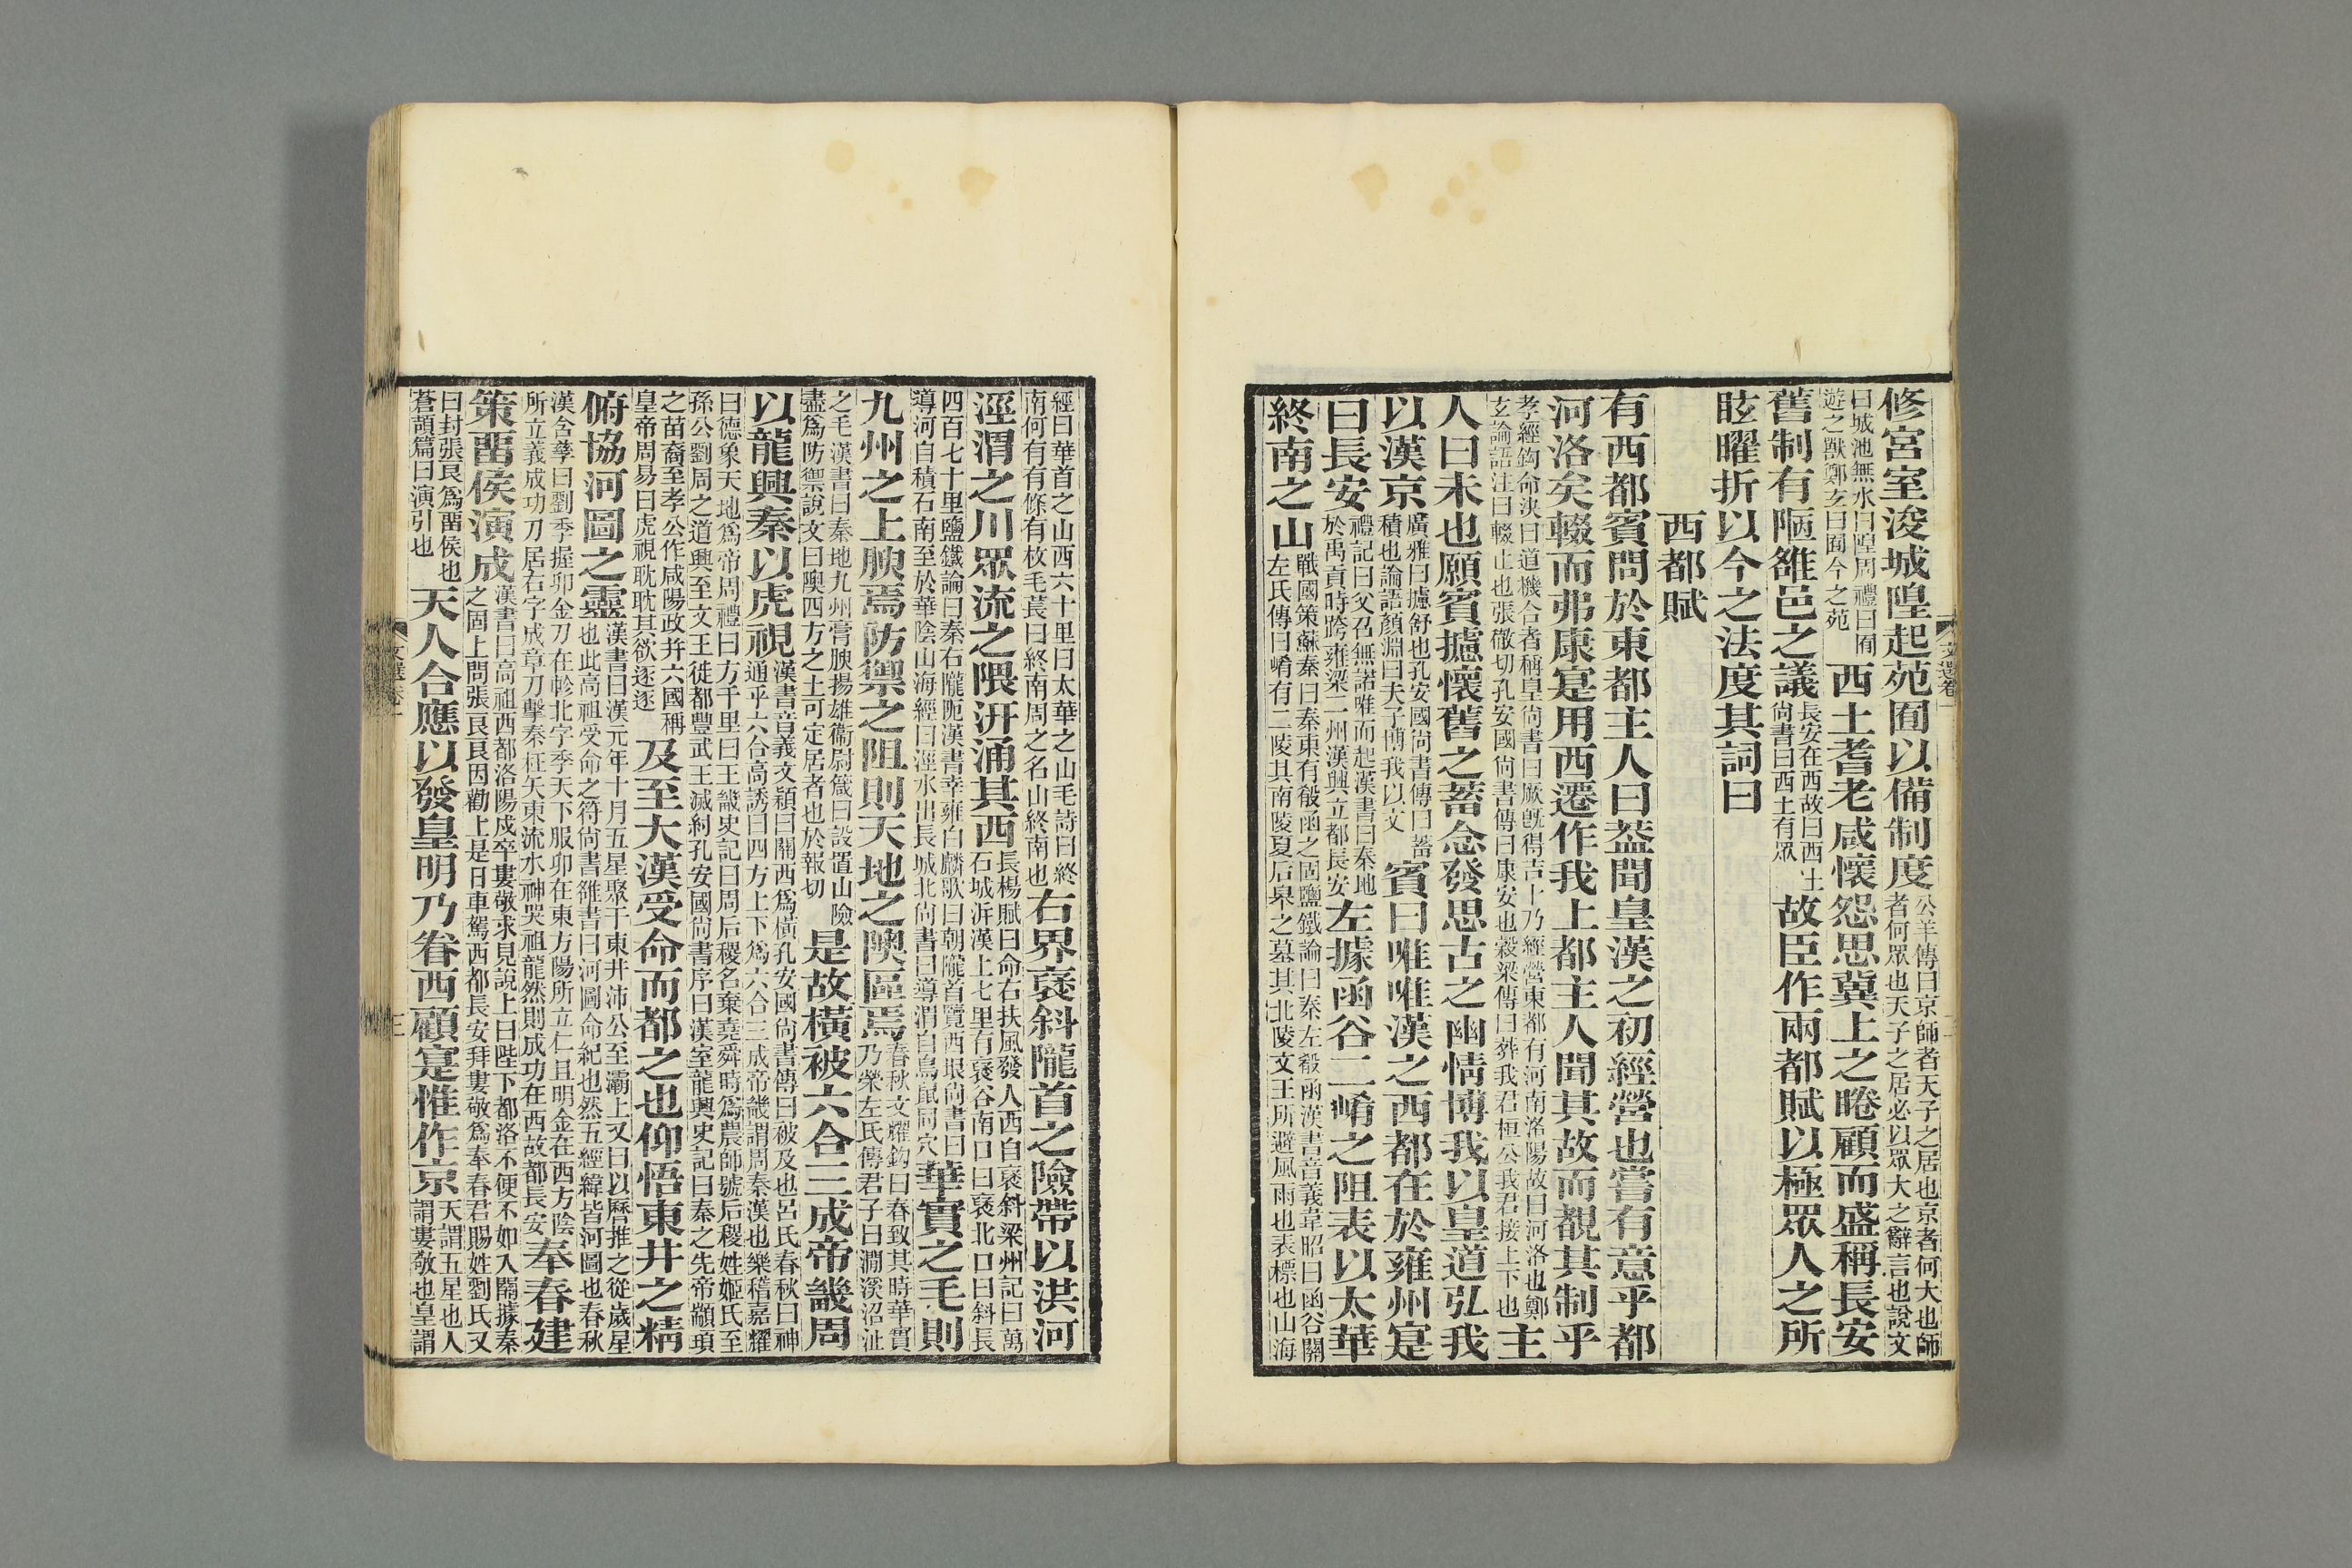 修宮室浚城隍起苑囿以備制度公羊傳曰京師者天子之居也京者何大也師者何眾也天子之居必以眾大之辭言也說文
曰城池無水曰隍周禮曰囿遊之獸鄭玄曰囿今之苑西土耆老咸懷怨思冀上之睠顧而盛稱長安
舊制有陋雒邑之議長安在西故曰西土尙書曰西土有眾故臣作兩都賦以極眾人之所
眩曜折以今之法度其詞曰
西都賦
有西都賓問於東都主人曰葢聞皇漢之初經營也嘗有意乎都
河洛矣輟而弗康寔用西遷作我上都主人聞其故而覩其制乎
孝經鉤命決曰道機合者稱皇尙書曰厥旣得吉卜乃經營東都有河南洛陽故曰河洛也鄭玄論語注曰輟止也張衞切孔安國尙書傳曰康安也穀梁傳曰葬我君桓公我君接上下也主
人曰未也願賓攄懷舊之蓄念發思古之幽情博我以皇道弘我
以漢京廣雅曰攄舒也孔安國尙書傳曰蓄積也論語顏淵曰夫子博我以文賓曰唯唯漢之西都在於雍州寔
曰長安禮記曰父召無諾唯而起漢書曰秦地於禹貢時跨雍梁二州漢興立都長安左據函谷二崤之阻表以太華
終南之山戰國策蘇秦曰秦東有殽函之固鹽鐵論曰秦左殽函漢書音義韋昭曰函谷關左氏傳曰崤有二陵其南陵夏后皋之墓其北陵文王所避風雨也表標也山海
文選卷一
二
經曰華首之山西六十里曰太華之山毛詩曰終南何有有條有枚毛萇曰終南周之名山終南也右界褒斜隴首之險帶以洪河
涇渭之川眾流之隈汧涌其西長楊賦曰命右扶風發人西自褒斜梁州記曰萬石城泝漢上七里有褒谷南口曰褒北口曰斜長
四百七十里鹽鐵論曰秦右隴阨漢書幸雍白麟歌曰朝隴首覽西垠尙書曰導河自積石南至於華陰山海經曰涇水出長城北尙書曰導渭自鳥鼠同穴華實之毛則
九州之上腴焉防禦之阻則天地之隩區焉春秋文耀鉤曰春致其時華實乃榮左氏傳君子曰澗溪沼沚
之毛漢書曰秦地九州膏腴揚雄衞尉箴曰設置山險盡爲防禦說文曰隩四方之土可定居者也於報切是故橫被六合三成帝畿周
以龍興秦以虎視漢書音義文穎曰關西爲橫孔安國尙書傳曰被及也呂氏春秋曰神通乎六合高誘曰四方上下爲六合三成帝畿謂周秦漢也樂稽嘉耀
曰德象天地爲帝周禮曰方千里曰王畿史記曰周后稷名棄堯舜時爲農師號后稷姓姬氏至孫公劉周之道興至文王徙都豐武王滅紂孔安國尙書序曰漢室龍興史記曰秦之先帝顓頊
之苗裔至孝公作咸陽政幷六國稱皇帝周易曰虎視耽耽其欲逐逐及至大漢受命而都之也仰悟東井之精
俯協河圖之靈漢書曰漢元年十月五星聚于東井沛公至灞上又曰以曆推之從歲星也此高祖受命之符尙書雒書曰河圖命紀也然五經緯皆河圖也春秋
漢含孳曰劉季握卯金刀在軫北字季天下服卯在東方陽所立仁且明金在西方陰所立義成功刀居右字成章刀擊秦枉矢東流水神哭祖龍然則成功在西故都長安奉春建
策畱侯演成漢書曰高祖西都洛陽戍卒婁敬求見說上曰陛下都洛不便不如入關據秦之固上問張良良因勸上是日車駕西都長安拜婁敬爲奉春君賜姓劉氏又
曰封張良爲畱侯也蒼頡篇曰演引也天人合應以發皇明乃眷西顧寔惟作京天謂五星也人謂婁敬也皇謂
文選卷一
三